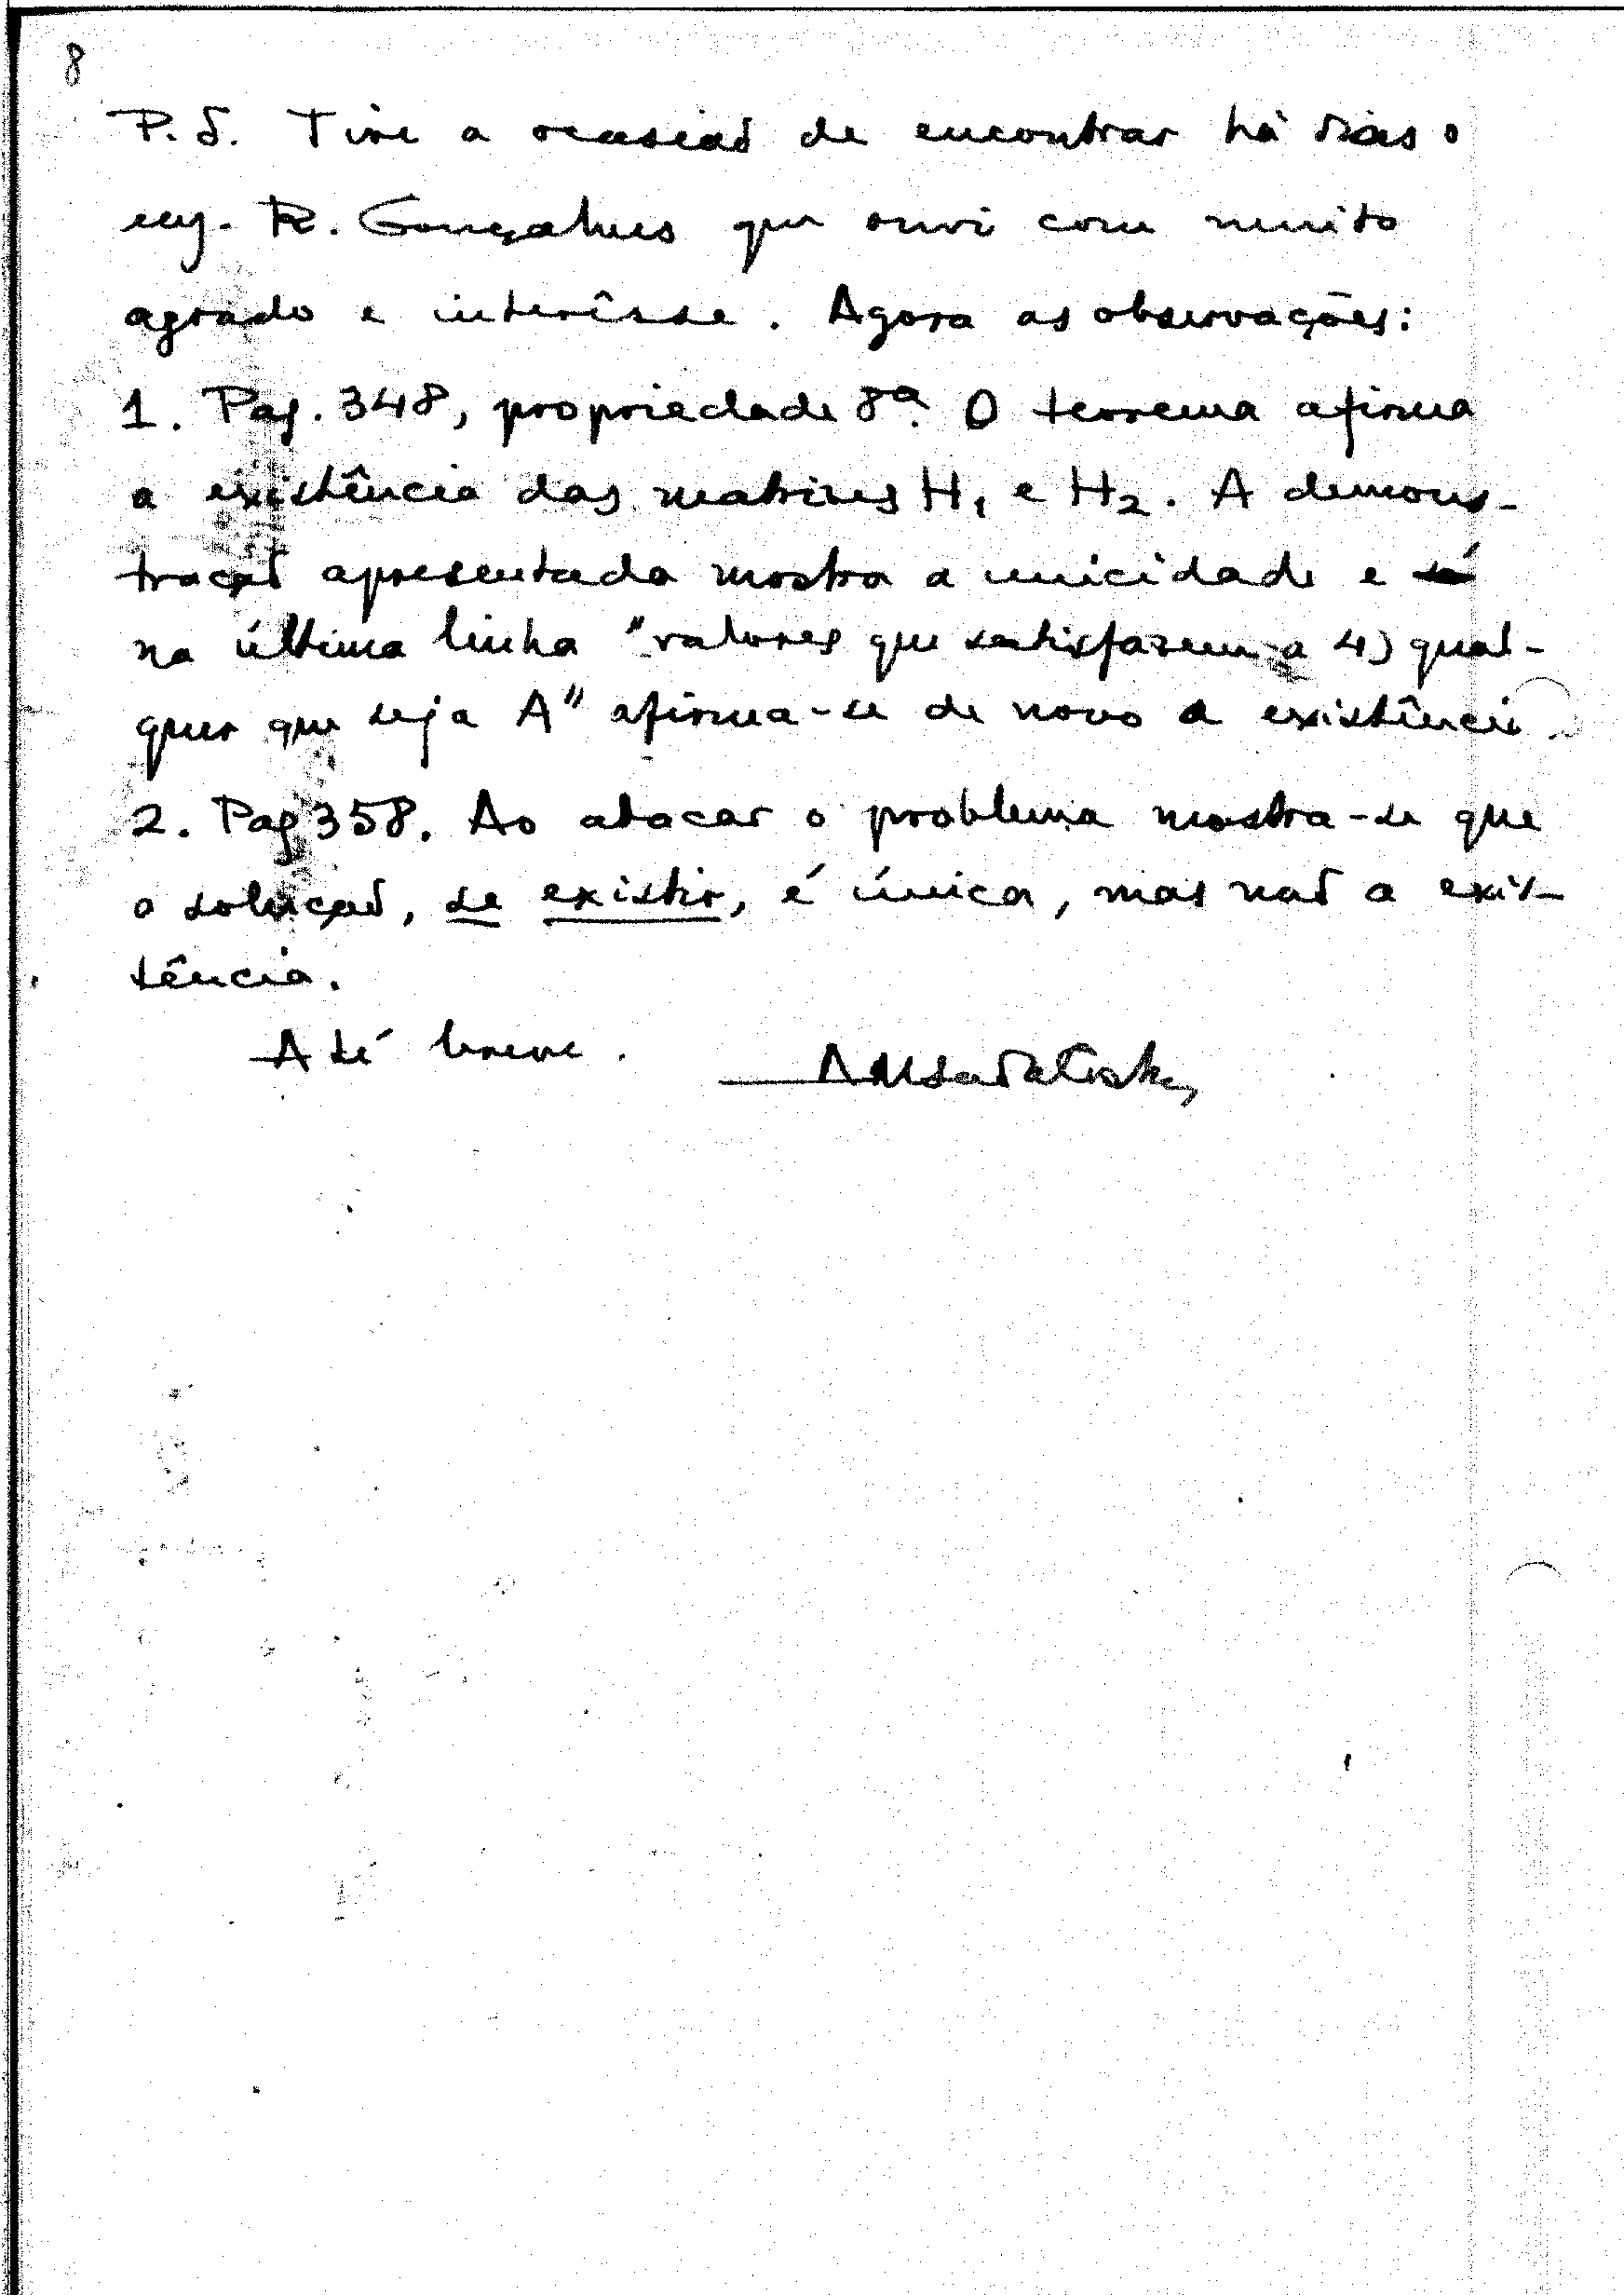 8
P.S. Tive a ocasião de encontrar há dias o
eng. R. Gonçalves que ouvi com muito
agrado e interêsse. Agora as observações:
1. Pag. 348, propriedade 8ª. O teorema afirma
a existência das matrizes H₁ e H₂. A demons-
tração apresentada mostra a unicidade e só
na última linha "valores que satisfazem a 4) qual-
quer que seja A" afirma-se de novo a existência
2. Pag 358. Ao atacar o problema mostra-se que
a solução, se existir, é única, mas não a exis-
tência.
Até breve.